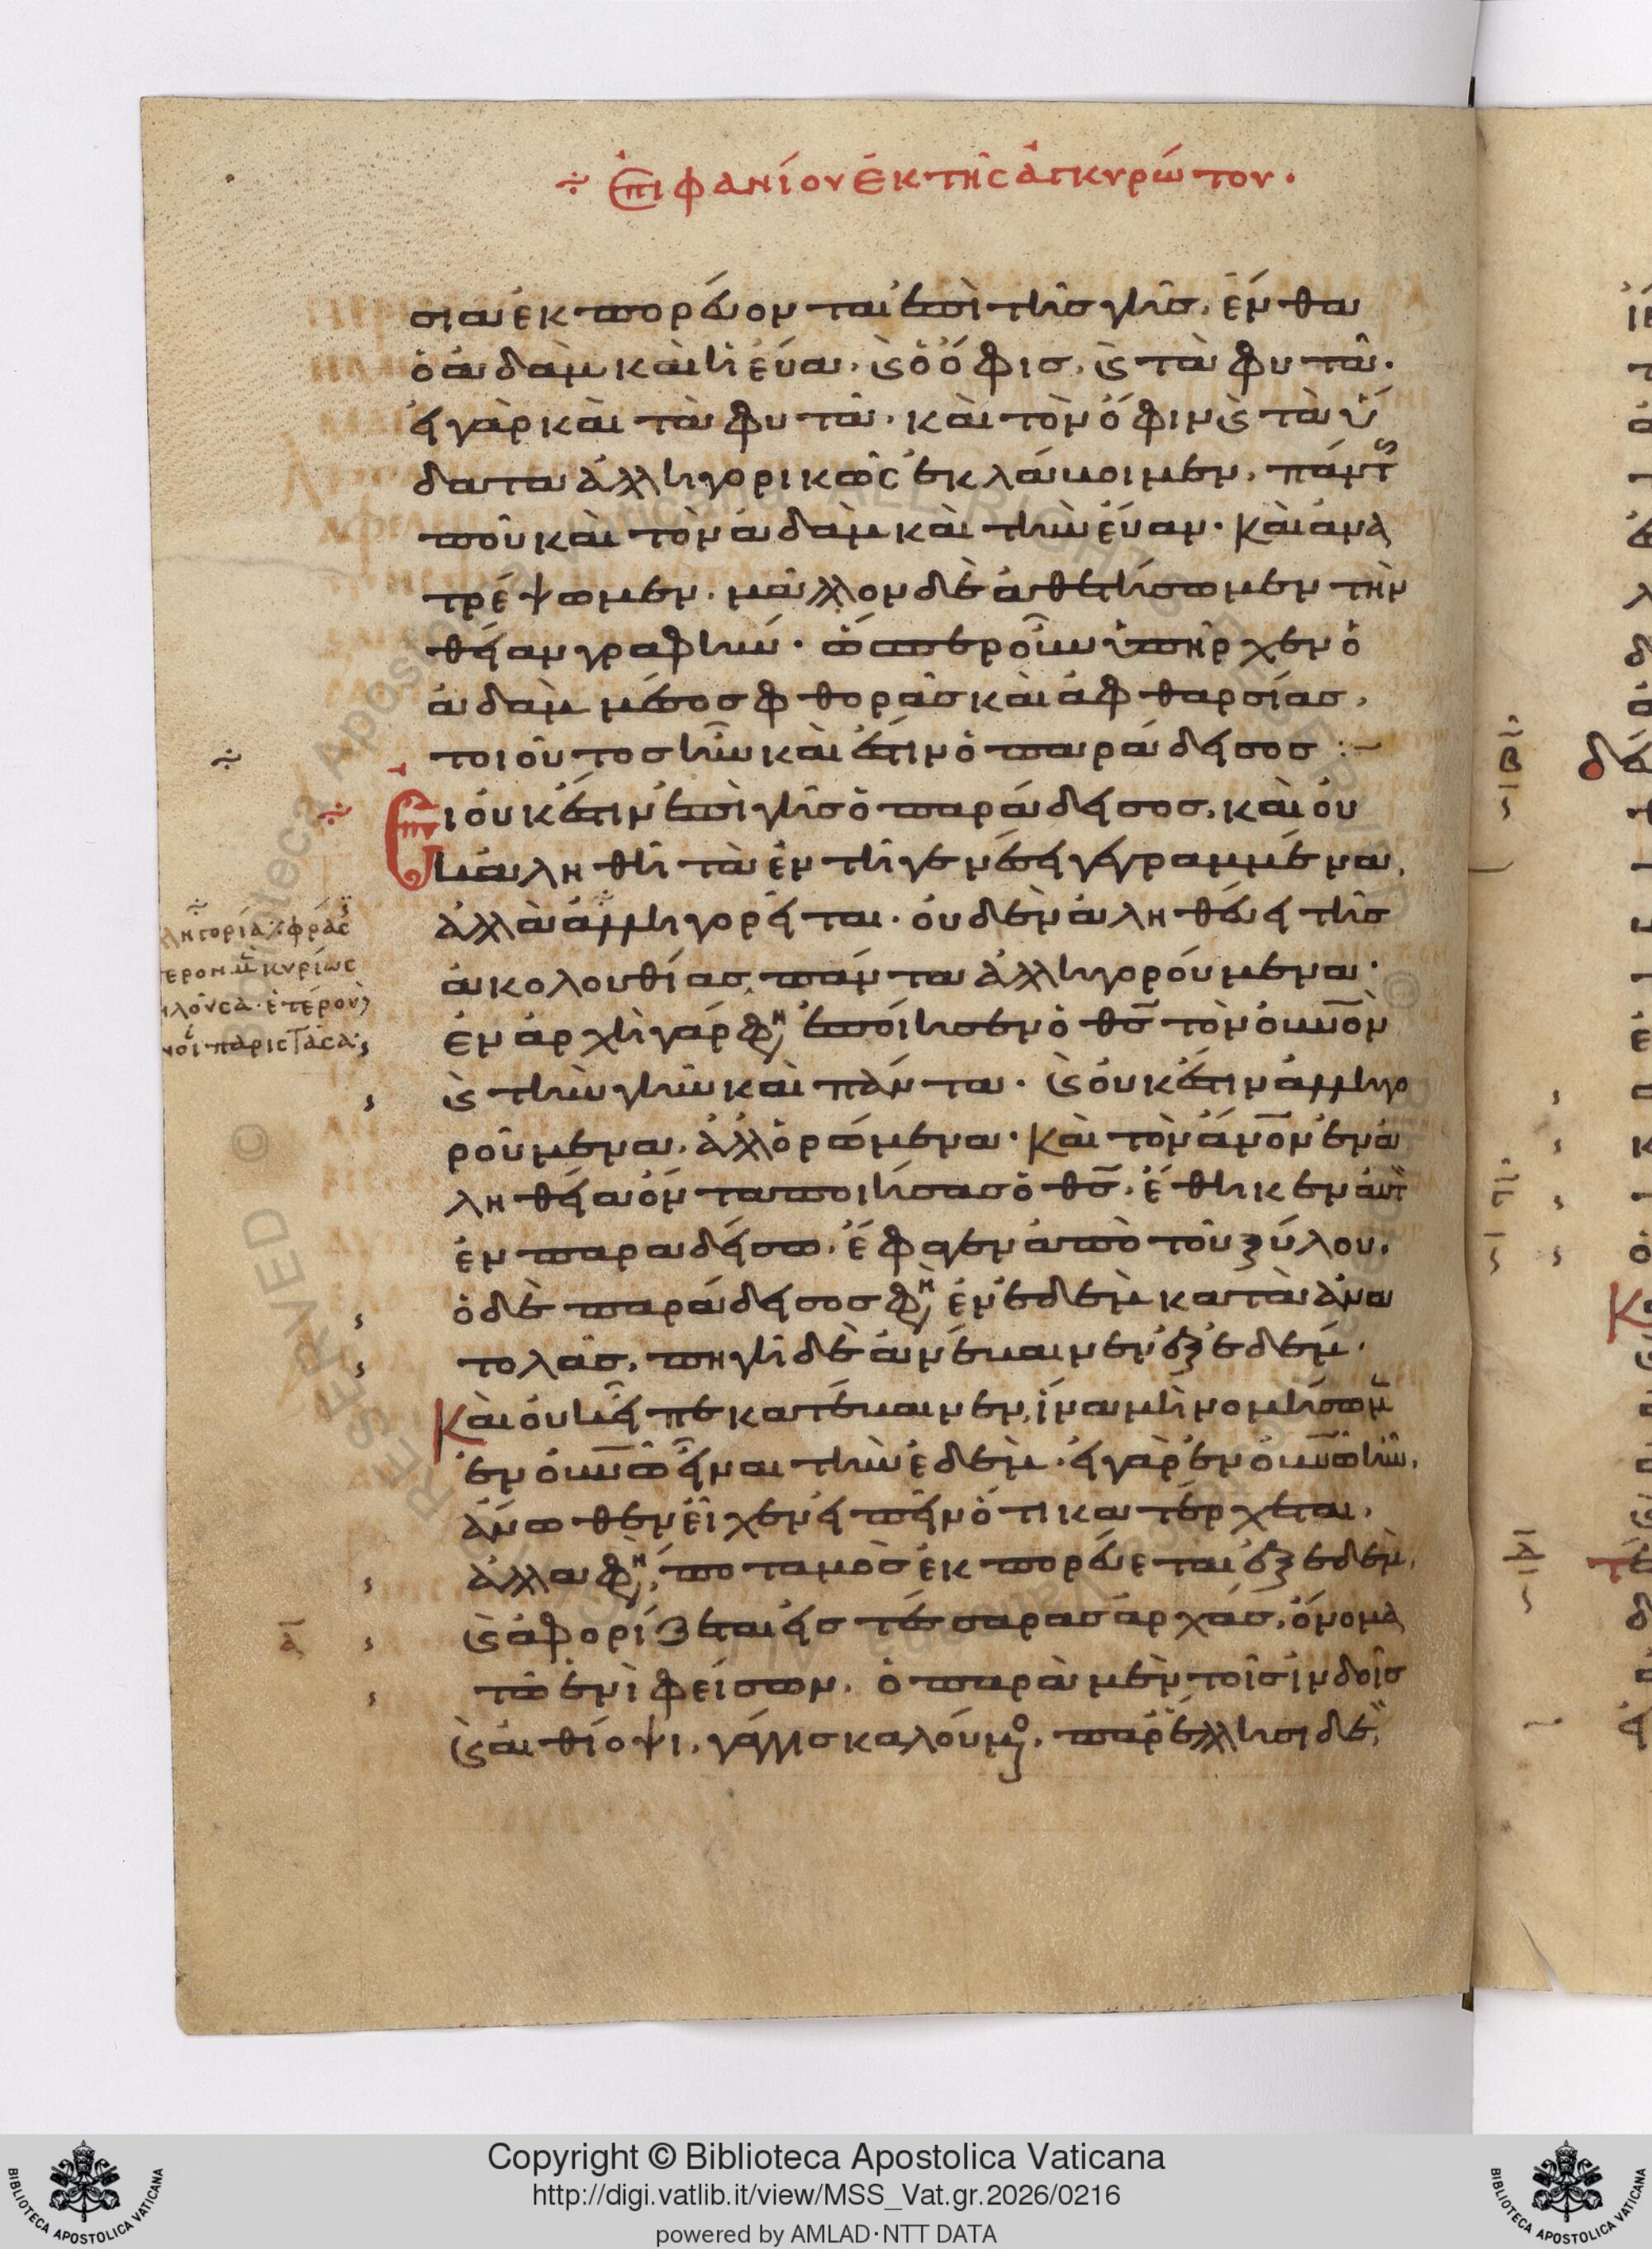 ÷ Ἐπιφανίου ἐκ τῆς ἀγκυρώτου.
σι αυ ἐκπορεύονται ἐπὶ τῆς γῆς, ἔνθα
ὁ ἀδὰμ καὶ ἡ ἔυα, ϗ ὁ ὄφις, ϗ τὰ φυτά.
εἰ γὰρ καὶ τὰ φυτὰ, καὶ τὸν ὄφιν ϗ τὰ ὕ
δατα ἀλληγορικῶς ἐκλάβοιμεν, πάντ
που καὶ τὸν ἀδὰμ καὶ τὴν ἔυαν. καὶ ἀνα
τρέψωμεν, μᾶλλον δὲ ἀθετήσωμεν τὴν
θείαν γραφήν. ὥσπερ οὖν ὑπῆρχεν ὁ
ἀδὰμ μέσος φθορᾶς καὶ ἀφθαρσίας,
τοιοῦτος ἦν καὶ ἐστιν ὁ παράδεισος :~
Εἰ οὐκ ἔστιν ἐπὶ γῆς ὁ παράδεισος, καὶ οὐκ
ἀληθῆ τὰ ἐν τῆ γενέσει γεγραμμένα,
ἀλλὰ ἀλληγορεῖται. οὐδὲν ἀληθεύει τῆς
ἀκολουθίας, πάντα ἀλληγορούμενα.
ἐν ἀρχῆ γάρ φη ἐποίησεν ὁ θς τὸν ουνον
ϗ τὴν γῆν καὶ πάντα. ϗ οὐκ ἔστιν ἀλληγο
ρούμενα, ἀλλ ὁρώμενα. καὶ τὸν ανον ἕνα
ληθεία ὄντα ποιήσας ὁ θς, ἔθηκεν αυτ
ἐν παραδείσω, ἔφαγεν ἀπὸ τοῦ ξύλου,
ὁ δὲ παράδεισος φη ἐν ἐδὲμ κατὰ ἀνα
τολὰς, πηγὴ δὲ ἀνέβαινεν ἐξ ἐδέμ.
Καὶ οὐκ εἶπε κατέβαινεν, ἵνα μὴ νομήσωμ
ἐν ουνω εἶναι τὴν ἐδέμ. εἰ γὰρ ἐν ουνω ἦν,
ἄνωθεν εἶχεν εἰπεῖν ὅτι κατέρχεται,
ἀλλα φη, ποταμὸς ἐκπορεύεται ἐξ ἐδέμ,
ϗ ἀφορίζεται εἰς τέσσαρας ἀρχάς, ὄνομα
τῶ ἑνὶ φεισων, ὁ παρὰ μὲν τοῖς ἰνδοῖς
ϗ αἰθίοψι, γάγγης καλούμο, παρ ἕλλησι δὲ,
÷
λληγορία φράς
ερον μ κυρίως
ηλοῦσα ἑτέρου
νοι παριστῶσα
α
β
γ
δ
Copyright © Biblioteca Apostolica Vaticana
http://digi.vatlib.it/view/MSS_Vat.gr.2026/0216
powered by AMLAD·NTT DATA
BIBLIOTECA APOSTOLICA VATICANA
BIBLIOTECA APOSTOLICA VATICANA